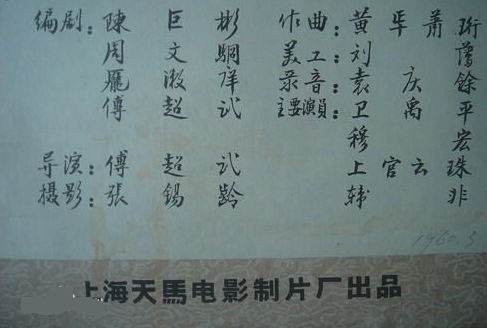 编剧：陳 巨 彬 作曲：黄 萧 珩
周 文 美工：刘
录音：袁 庆 餘
傅 超 武 主要演員：卫 禹 平
穆 宏
导演：傅 超 武 上 官 云 珠
摄影：張 錫 龄 韩 非
1960.3
上海天馬电影制片厂出品